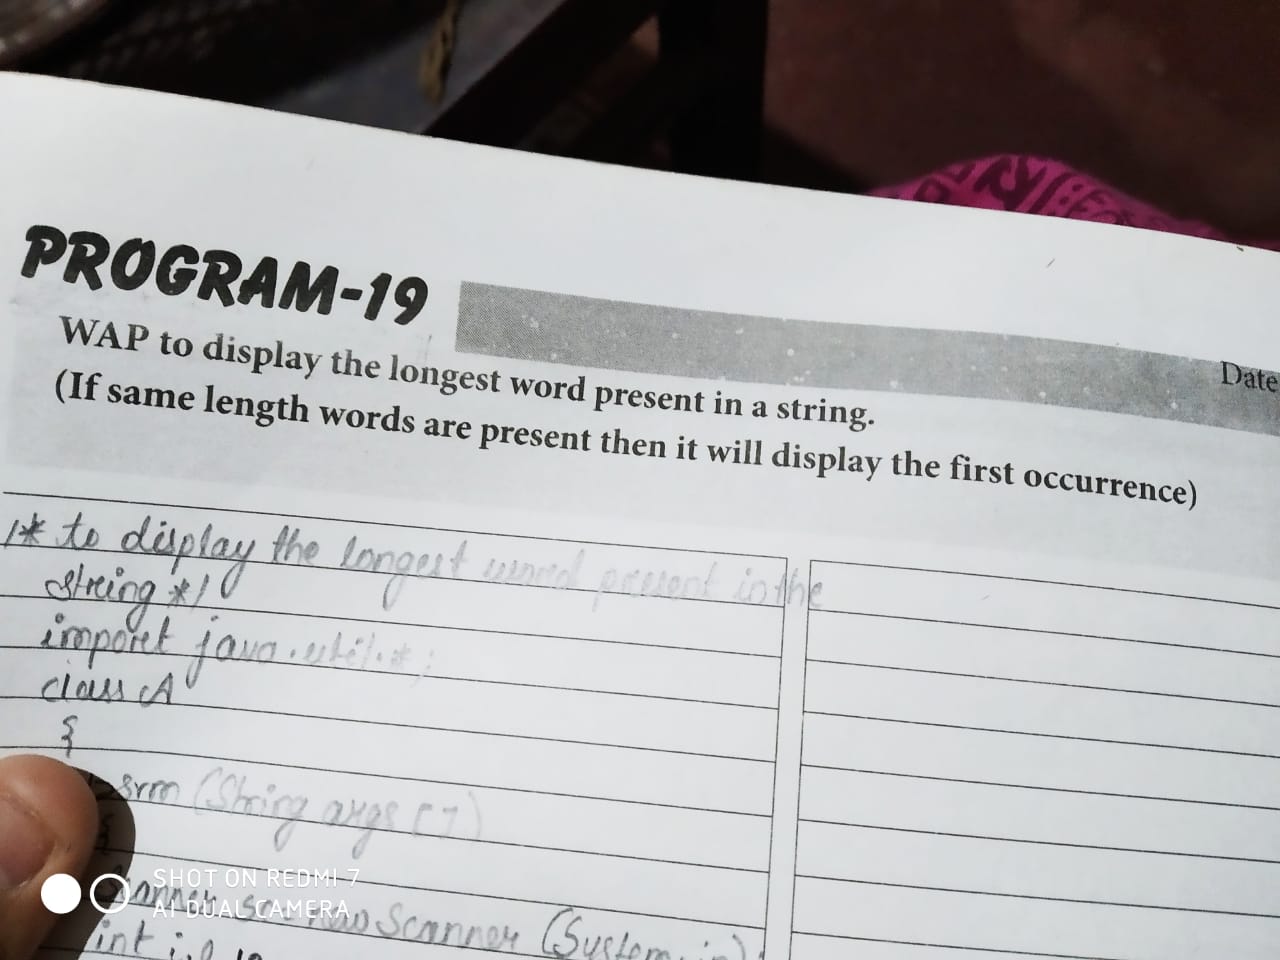 PROGRAM-19
Date
WAP to display the longest word present in a string.
(If same length words are present then it will display the first occurrence)
/* to display the longest word present in the
string */
import java.util.*;
class A
{
srm (String args [])
{
Scanner new Scanner (System.in)
int i,l
SHOT ON REDMI 7
AI DUAL CAMERA